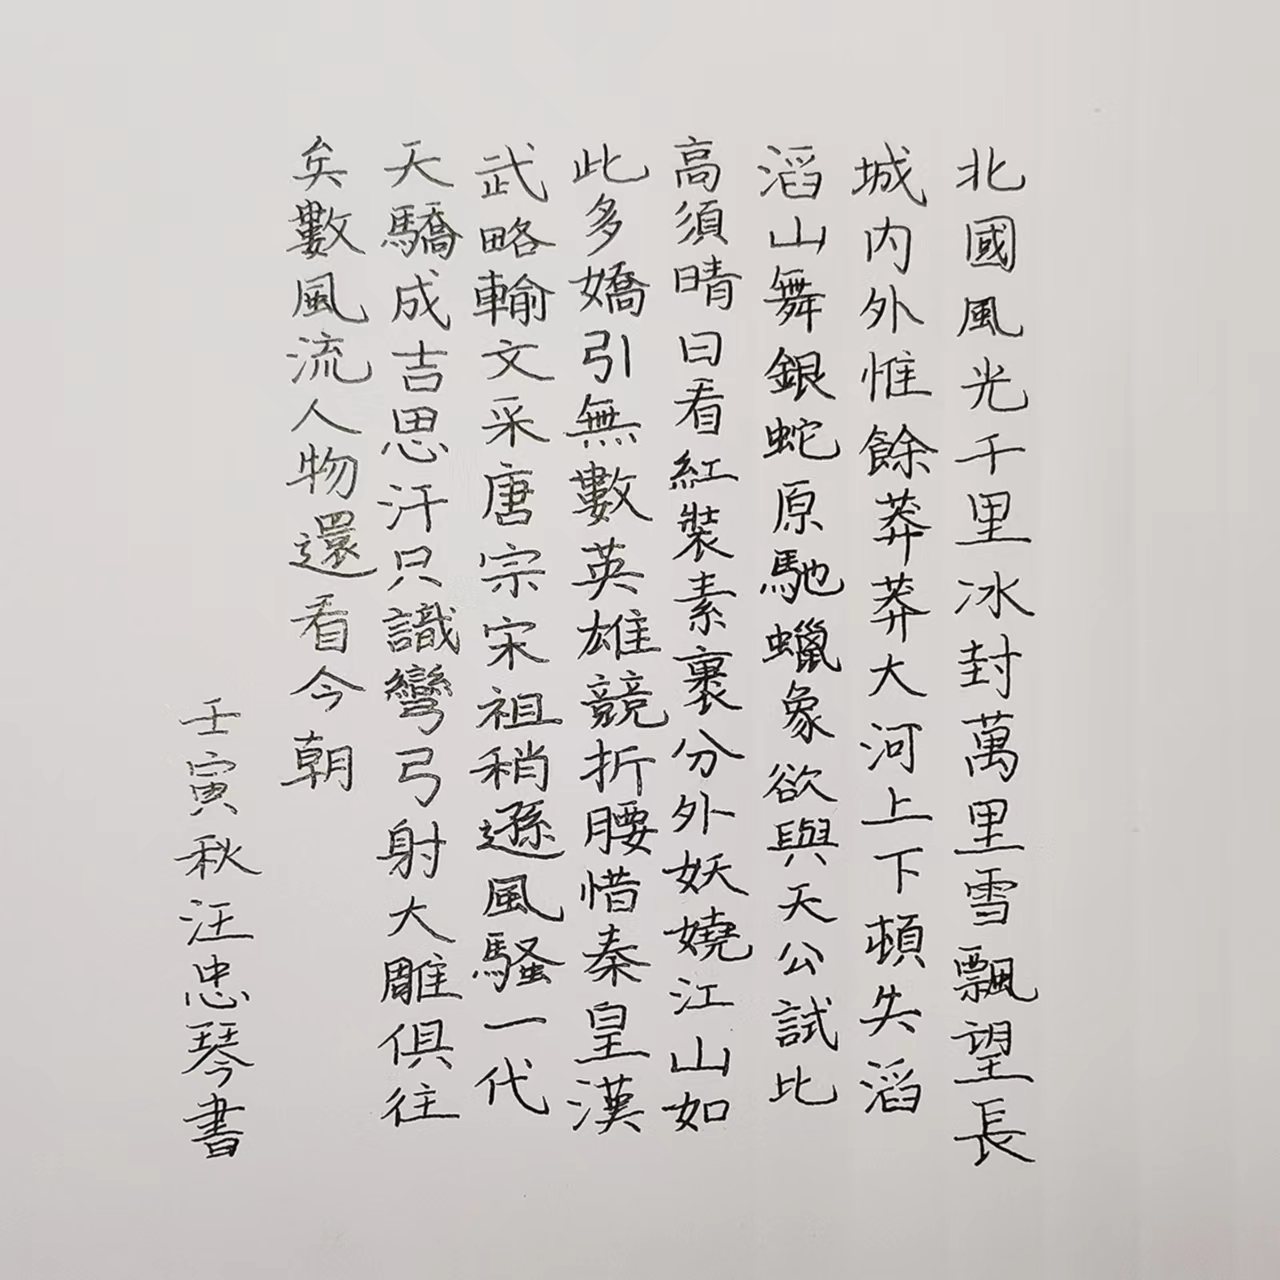 北國風光千里冰封萬里雪飄望長
城内外惟餘莽莽大河上下頓失滔
滔山舞銀蛇原馳蠟象欲與天公試比
高須晴日看紅裝素裹分外妖嬈江山如
此多嬌引無數英雄競折腰惜秦皇漢
武略輸文采唐宗宋祖稍遜風騷一代
天驕成吉思汗只識彎弓射大雕俱往
矣數風流人物還看今朝
壬寅秋汪忠琴書